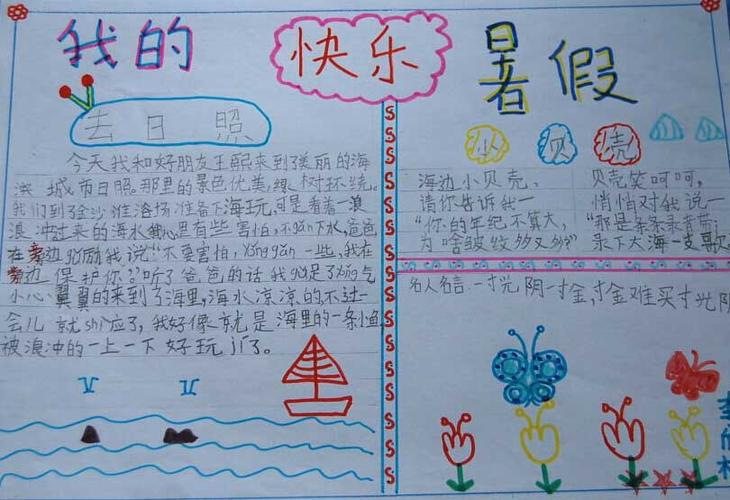 我的 快乐 暑假
去日照
今天我和好朋友王熙来到了美丽的海
滨城市日照。那里的景色优美,绿树环绕。
我们到了金沙滩浴场准备下海玩,可是看着一浪
浪冲过来的海水我心里有些害怕,不gǎn下水,爸爸
在旁边gǔ励我说:“不要害怕,yǒng gǎn一些,我在
旁边保护你。”听了爸爸的话我gǔ足了yǒng气
小心翼翼的来到了海里,海水凉凉的,不过一
会儿就shì应了,我好像就是海里的一条小鱼
被浪冲的一上一下好玩jí了。
小贝壳
海边小贝壳、
请你告诉我一
“你的年纪不算大,
为啥皱纹多又多”
贝壳笑呵呵,
悄悄对我说一
“那是条条录音带,
录下大海一支歌
名人名言一寸光阴一寸金,寸金难买寸光阴